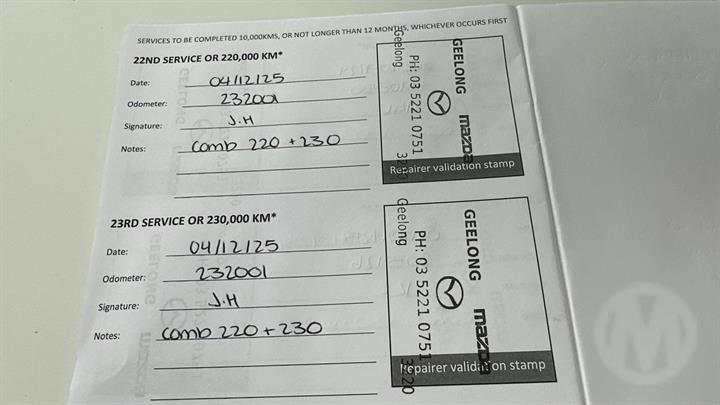 SERVICES TO BE COMPLETED 10,000KMS, OR NOT LONGER THAN 12 MONTHS, WHICHEVER OCCURS FIRST
22ND SERVICE OR 220,000 KM*
Date: 04/12/25
Odometer: 232001
Signature: J.H
Notes: Comb 220 + 230
GEELONG mazda
PH: 03 5221 0751
Geelong
Repairer validation stamp
23RD SERVICE OR 230,000 KM*
Date: 04/12/25
Odometer: 232001
Signature: J.H
Notes: Comb 220 + 230
GEELONG mazda
PH: 03 5221 0751
Geelong
Repairer validation stamp
M